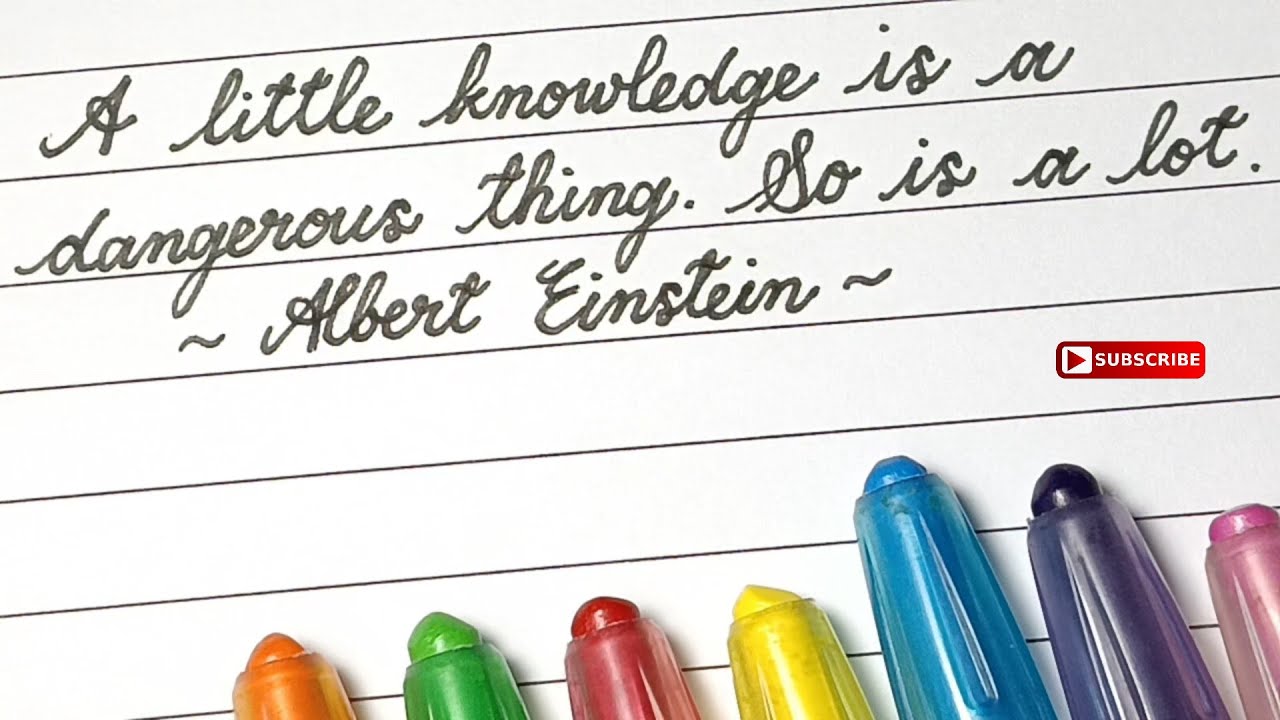 A little knowledge is a
dangerous thing. So is a lot.
~ Albert Einstein ~
SUBSCRIBE